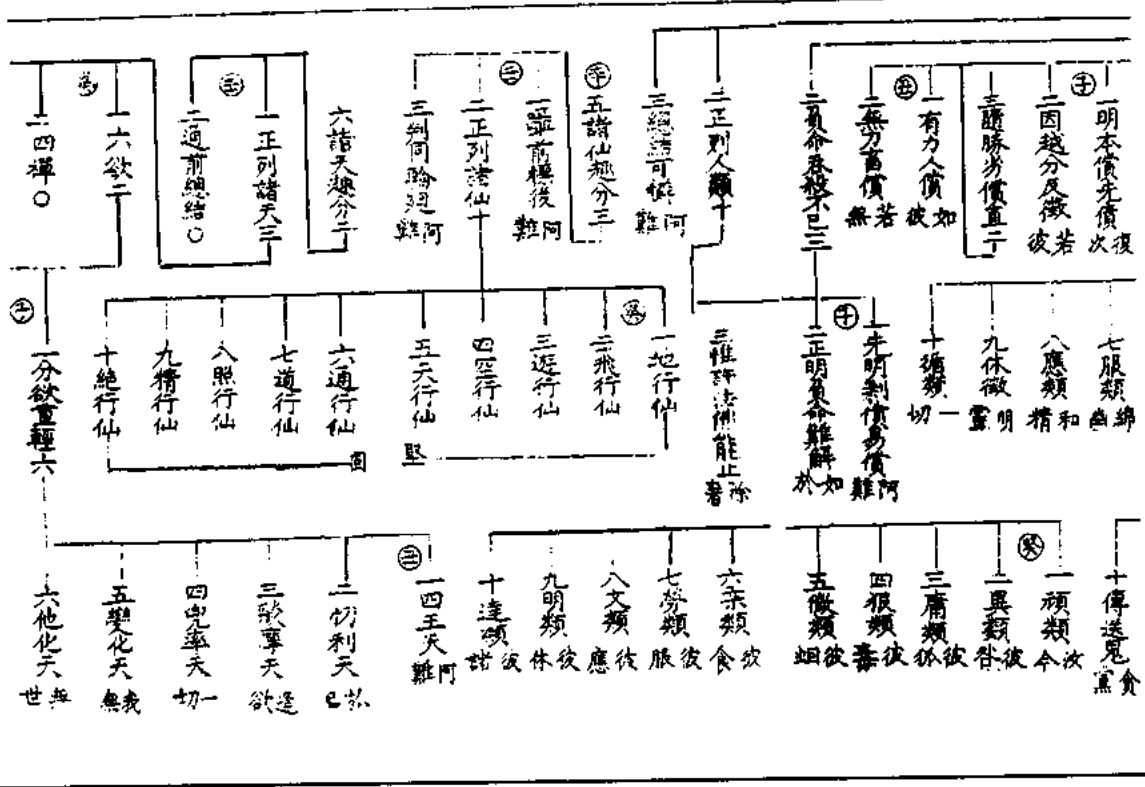 子
一明本償先債 復次
二因越分反徵 若彼
三酬勝劣償直二
丑
一有力人償 如彼
二無力畜償 若無
二負命吞殺不已三
二正列人類十
三總結可憐 阿難
辛
五諸仙趣分三
壬
一躡前標後 阿難
二正列諸仙十
三判同輪迴 阿難
六諸天趣分二
壬
一正列諸天三
二通前總結〇
癸
一六欲二
二四禪〇
七服類 綿幽
八應類 和精
九休徵 明靈
十循類 一切
子
一先明剩債易償 阿難
二正明負命難解 如於
三惟許法佛能止 除奢
癸
一地行仙 堅
二飛行仙
三遊行仙
四空行仙
五天行仙
六通行仙
七道行仙
八照行仙
九精行仙
十絕行仙 固
子
一分欲重輕六
十傳送鬼 貪黨
癸
一頑類 汝今
二異類 彼咎
三庸類 彼狐
四狠類 彼毒
五微類 彼蛔
六柔類 彼食
七勞類 彼服
八文類 彼應
九明類 彼休
十達類 彼諸
丑
一四王天 阿難
二忉利天 於己
三燄摩天 逢欲
四兜率天 一切
五變化天 我無
六他化天 無世